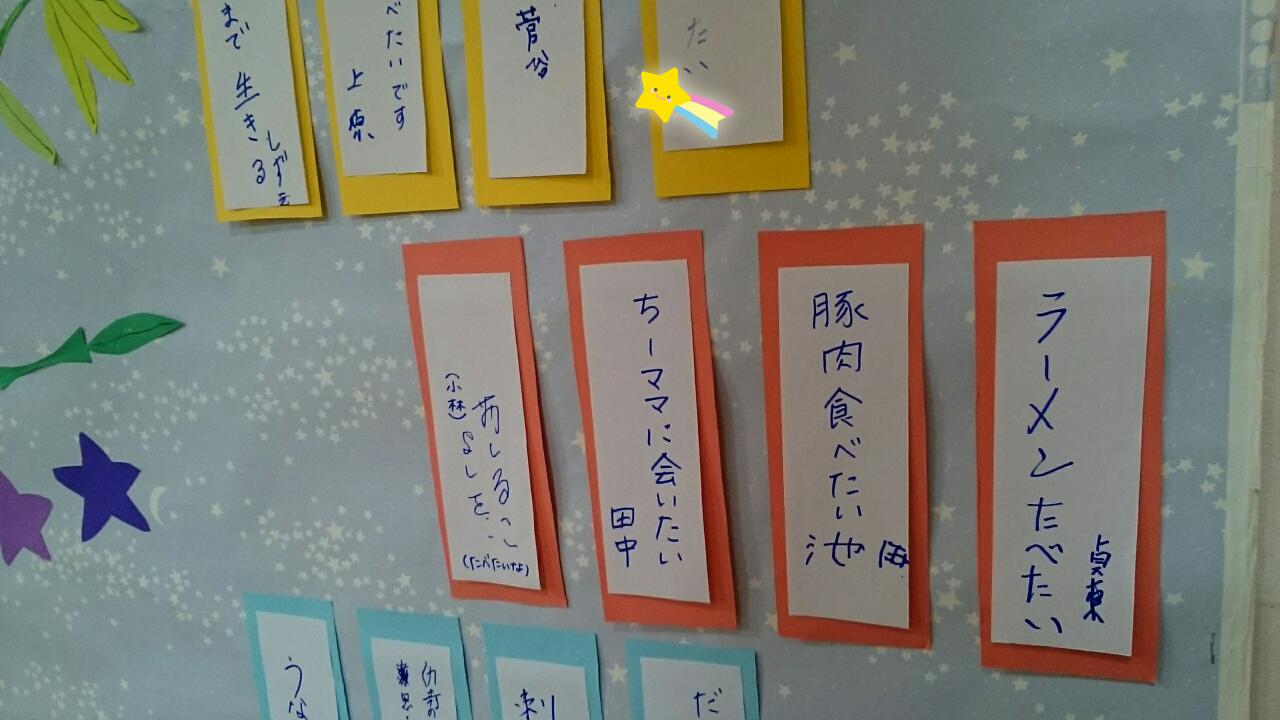 たい
菅谷
べたいです
上原
まで生きる
しずえ
ラーメンたべたい
貞東
豚肉食べたい
池
ちーママに会いたい
田中
おしるこ
(たべたいな)
(小林)
だ
刺
うな